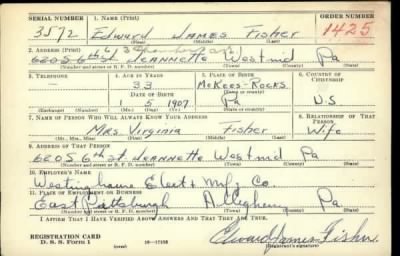 SERIAL NUMBER 1. NAME (Print) ORDER NUMBER
3572 Edward James Fisher 1425
(First) (Middle) (Last)
2. ADDRESS (Print)
6205 6th St Jeannette Westmd Pa
(Number and street or R. F. D. number) (Town) (County) (State)
3. TELEPHONE 4. AGE IN YEARS 5. PLACE OF BIRTH 6. COUNTRY OF CITIZENSHIP
33 McKees-Rocks
DATE OF BIRTH (Town or county)
1 5 1907 Pa U.S
(Exchange) (Number) (Mo.) (Day) (Yr.) (State or country)
7. NAME OF PERSON WHO WILL ALWAYS KNOW YOUR ADDRESS 8. RELATIONSHIP OF THAT PERSON
Mrs Virginia Fisher Wife
(Mr., Mrs., Miss) (First) (Middle) (Last)
9. ADDRESS OF THAT PERSON
6205 6th St. Jeannette Westmd Pa
(Number and street or R. F. D. number) (Town) (County) (State)
10. EMPLOYER'S NAME
Westinghouse Elect & Mfg Co
11. PLACE OF EMPLOYMENT OR BUSINESS
East Pittsburgh Allegheny Pa
(Number and street or R. F. D. number) (Town) (County) (State)
I AFFIRM THAT I HAVE VERIFIED ABOVE ANSWERS AND THAT THEY ARE TRUE.
REGISTRATION CARD
D. S. S. Form 1 (over) 16-17105
Edward James Fisher
(Registrant's signature)